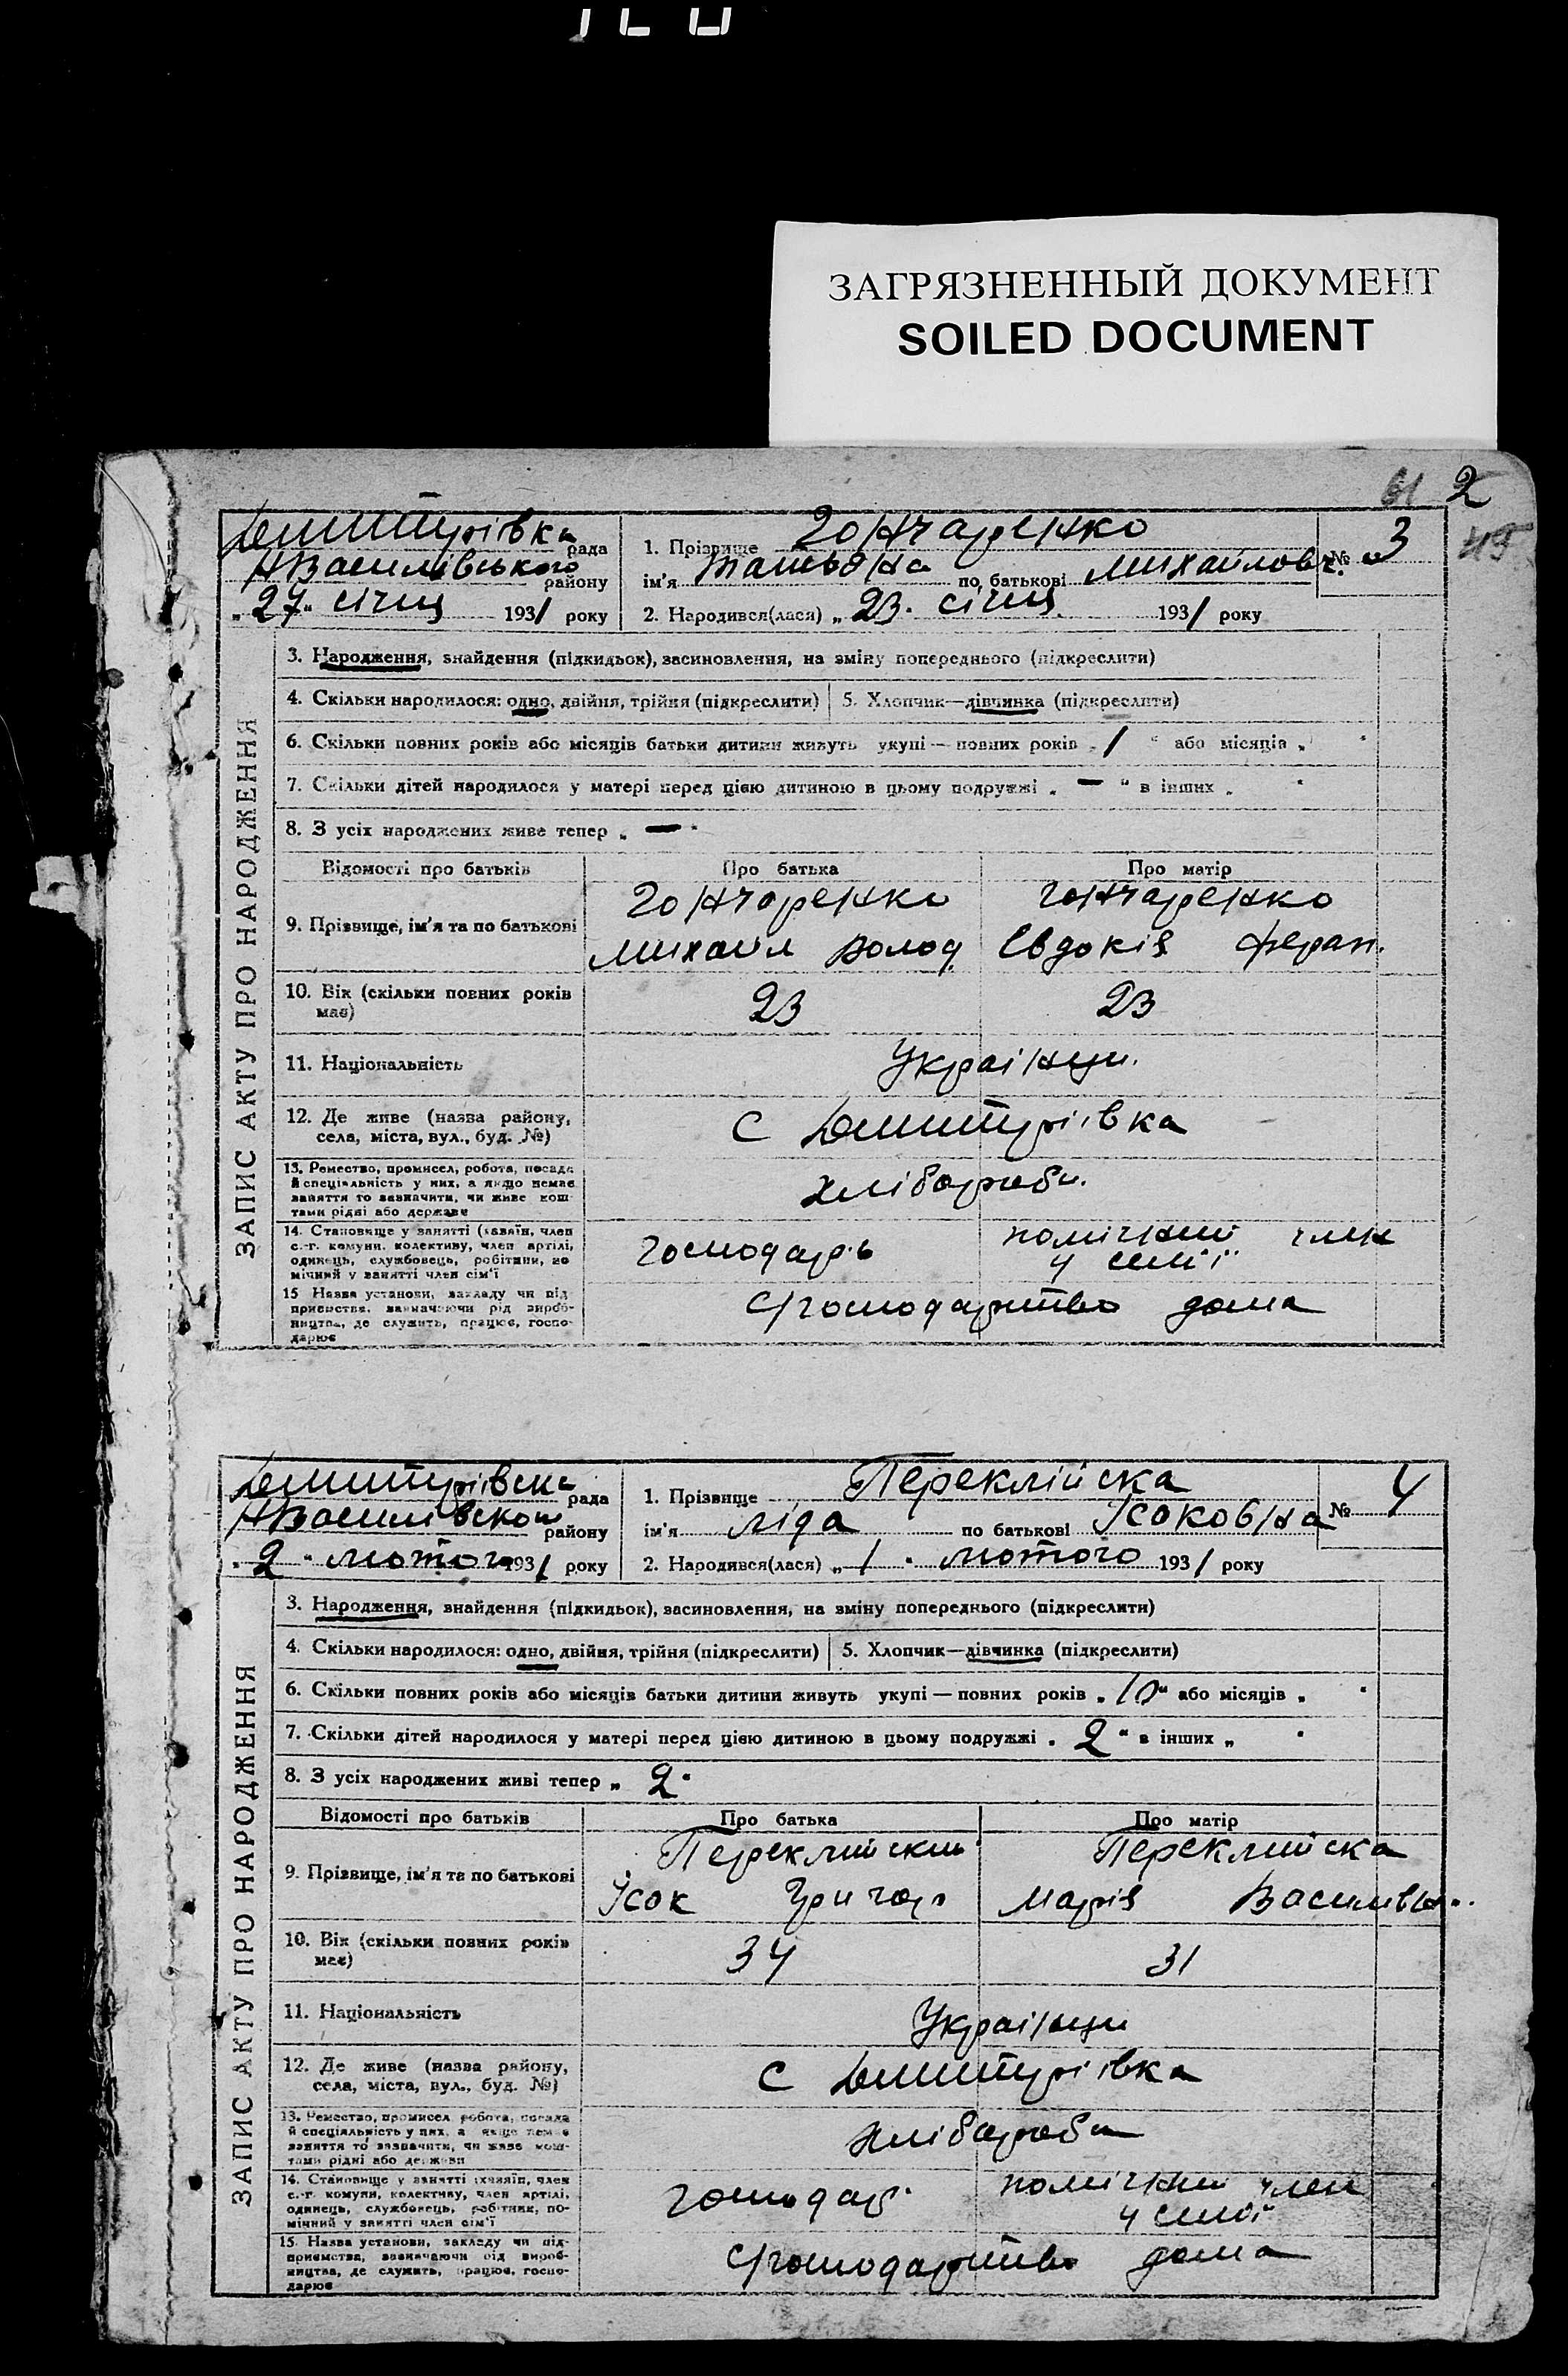 ЗАГРЯЗНЕННЫЙ ДОКУМЕНТ
SOILED DOCUMENT
61 2
45
Дмитрівка рада
НВасилівського району
„ 27 " січня 1931 року
1. Прізвище Гончаренко
№ 3
ім'я Татьяна по батькові Михайловч.
2. Народився(лася) „ 23 " січня 1931 року
ЗАПИС АКТУ ПРО НАРОДЖЕННЯ
3. Народження, знайдення (підкидьок), засиновлення, на зміну попереднього (підкреслити)
4. Скільки народилося: одно, двійня, трійня (підкреслити) 5. Хлопчик—дівчинка (підкреслити)
6. Скільки повних років або місяців батьки дитини живуть укупі — повних років „ 1 " або місяців „ "
7. Скільки дітей народилося у матері перед цією дитиною в цьому подружжі „ — " в інших „ "
8. З усіх народжених живе тепер „ — "
Відомості про батьків Про батька Про матір
9. Прізвище, ім'я та по батькові Гончаренко Гончаренко
Михайл Волод Євдокія Феран.
10. Вік (скільки повних років має) 23 23
11. Національність Українци.
12. Де живе (назва району, села, міста, вул., буд. №) с Дмитрівка
13. Ремество, промисел, робота, посада
й спеціяльність у них, а якщо немає
заняття то зазначити, чи живе кош-
тами рідні або держави
хлібороби.
14. Становище у занятті (хазяїн, член
с.-г. комуни, колективу, член артілі,
одинець, службовець, робітник, по-
мічний у занятті член сім'ї
господарь помічний член
у семії
15 Назва установи, закладу чи під-
приємства, зазначаючи рід вироб-
ництва, де служить, працює, госпо-
дарює
С/господарство дома
Дмитрівска рада
НВасилівского району
„ 2 " лютого 1931 року
1. Прізвище Переклійска
№ 4
ім'я Ліда по батькові Ісаковна
2. Народився(лася) „ 1 " лютого 1931 року
ЗАПИС АКТУ ПРО НАРОДЖЕННЯ
3. Народження, знайдення (підкидьок), засиновлення, на зміну попереднього (підкреслити)
4. Скільки народилося: одно, двійня, трійня (підкреслити) 5. Хлопчик—дівчинка (підкреслити)
6. Скільки повних років або місяців батьки дитини живуть укупі — повних років „ 10 " або місяців „ "
7. Скільки дітей народилося у матері перед цією дитиною в цьому подружжі „ 2 " в інших „ "
8. З усіх народжених живі тепер „ 2 "
Відомості про батьків Про батька Про матір
9. Прізвище, ім'я та по батькові Переклийский Переклийска
Ісак Григор Марія Василівн.
10. Вік (скільки повних років має) 34 31
11. Національність Українци
12. Де живе (назва району, села, міста, вул., буд. №) с Дмитрівка
13. Ремество, промисел, робота, посада
й спеціяльність у них, а якщо немає
заняття то зазначити, чи живе кош-
тами рідні або держави
хлібороби
14. Становище у занятті (хазяїн, член
с.-г. комуни, колективу, член артілі,
одинець, службовець, робітник, по-
мічний у занятті член сім'ї
господар помічний член
у семії
15. Назва установи, закладу чи під-
приємства, зазначаючи рід вироб-
ництва, де служить, працює, госпо-
дарює
С/господарство дома